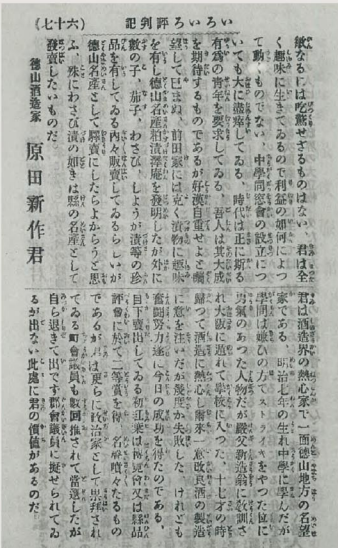 いろいろ評判記 (六十七)
敏なるには吃驚せざるものはない、君は全
く趣味に生きてゐるので利益の如何によつ
て動くものでない、中學同窓會の設立につ
いても大に盡瘁してゐる、時代は正に斯る
有為の青年を要求してゐる、吾人は其大成
を期待するものであるが好漢自重せよと囑
望して已まぬ、前田家には克く漬物に趣味
を有し德山名産粕漬澤庵を發明したが外に
數の子、茄子、わさび、しようが漬等の珍
品を有してゐる内々販賣してゐるらしいが
德山名産として驛賣にしたらよからうと思
ふ、殊にわさび漬の如きは縣の名産として
發賣したいものだ。
德山酒造家 原田新作君
君は酒造界の熱心家で一面德山地方の名望
家である、明治七年の生れ中學に學んだが
學問は嫌ひの方でストライキをやつた位に
勇氣のあつた人物だが嚴父新造翁に敎訓さ
れ大阪に遁れて學校に入つた、十七才の時
歸つて酒造に熱心し爾來一意改良酒の製造
に意を注いだが幾度か失敗した、けれども
奮鬪努力遂に今日の成功を得たのである、
目下賣出してゐる初紅葉は博覽會又は縣品
評會に於て一等賞を得、名聲嘖々たるもの
であるが君は更らに政治家として崇拜され
てゐる町會議員も數回推されて當選したが
自ら退きて出です郡會議員に擬せられてゐ
るが出ない此處に君の價値があるのだ。